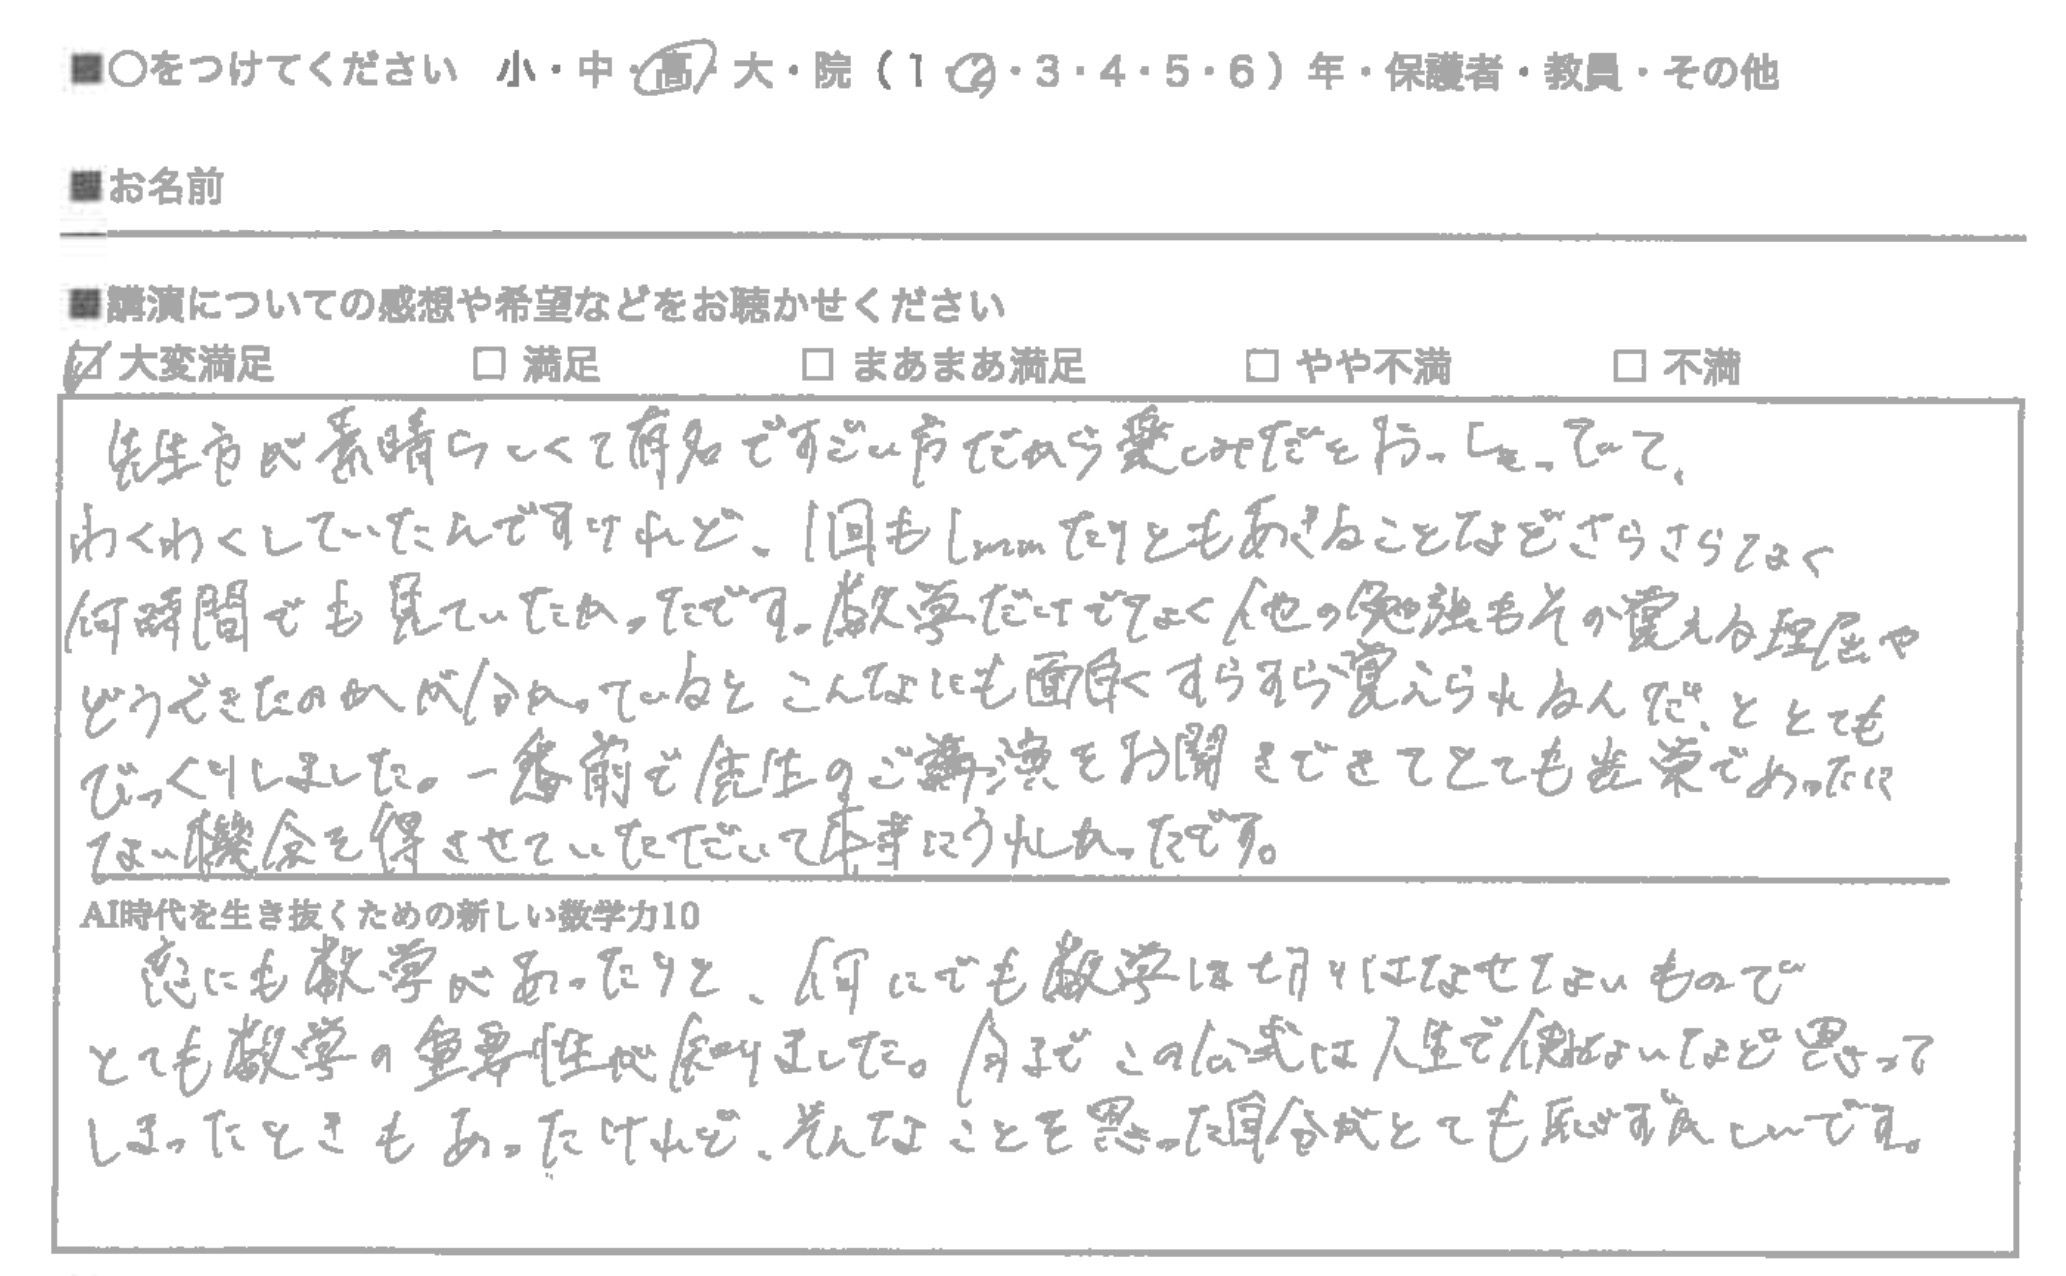 ■○をつけてください 小・中・高・大・院（1・2・3・4・5・6）年・保護者・教員・その他
■お名前
■講演についての感想や希望などをお聴かせください
☑ 大変満足 □ 満足 □ まあまあ満足 □ やや不満 □ 不満
先生方が素晴らしくて有名ですごい方だから楽しみだとおっしゃっていて、
わくわくしていたんですけれど、1回も1mmたりともあきることなどさらさらなく
何時間でも見ていたかったです。数学だけでなく他の勉強もその覚える理屈や
どうできたのかが分かっているとこんなにも面白くすらすら覚えられるんだ、ととても
びっくりしました。一番前で先生のご講演をお聞きできてとても光栄でめったに
ない機会を得させていただいて本当にうれしかったです。
AI時代を生き抜くための新しい数学力10
恋にも数学があったりと、何にでも数学は切りはなせないもので
とても数学の重要性が知りました。今までこの公式は人生で使わないなど思って
しまったときもあったけれど、そんなことを思った自分がとても恥ずかしいです。